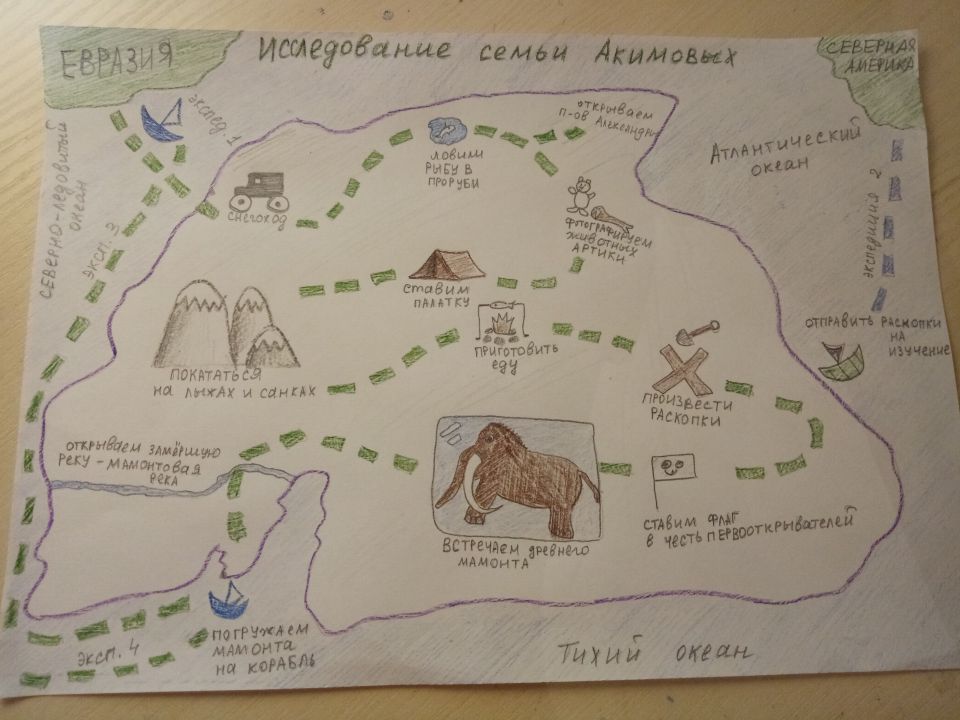 ЕВРАЗИЯ
Исследование семьи Акимовых
СЕВЕРНАЯ
АМЕРИКА
экспед. 1
открываем
п-ов Александры
АТЛАНТИЧЕСКИЙ
океан
СЕВЕРНО-ЛЕДОВИТЫЙ
океан
эксп. 3
экспедиция 2
ловим
РЫБУ В
ПРОРУБИ
СНЕГОХОД
фотографируем
животных
АРТИКИ
СТАВИМ
ПАЛАТКУ
ОТПРАВИТЬ РАСКОПКИ
НА
ИЗУЧЕНИЕ
ПОКАТАТЬСЯ
на лыжах и санках
ПРИГОТОВИТЬ
ЕДУ
ПРОИЗВЕСТИ
РАСКОПКИ
ОТКРЫВАЕМ ЗАМЁРШУЮ
РЕКУ - МАМОНТОВАЯ
РЕКА
ВСТРЕЧАЕМ древнего
МАМОНТА
СТАВИМ ФЛАГ
В ЧЕСТЬ ПЕРВООТКРЫВАТЕЛЕЙ
эксп. 4
ПОГРУЖАЕМ
МАМОНТА
НА КОРАБЛЬ
Тихий океан